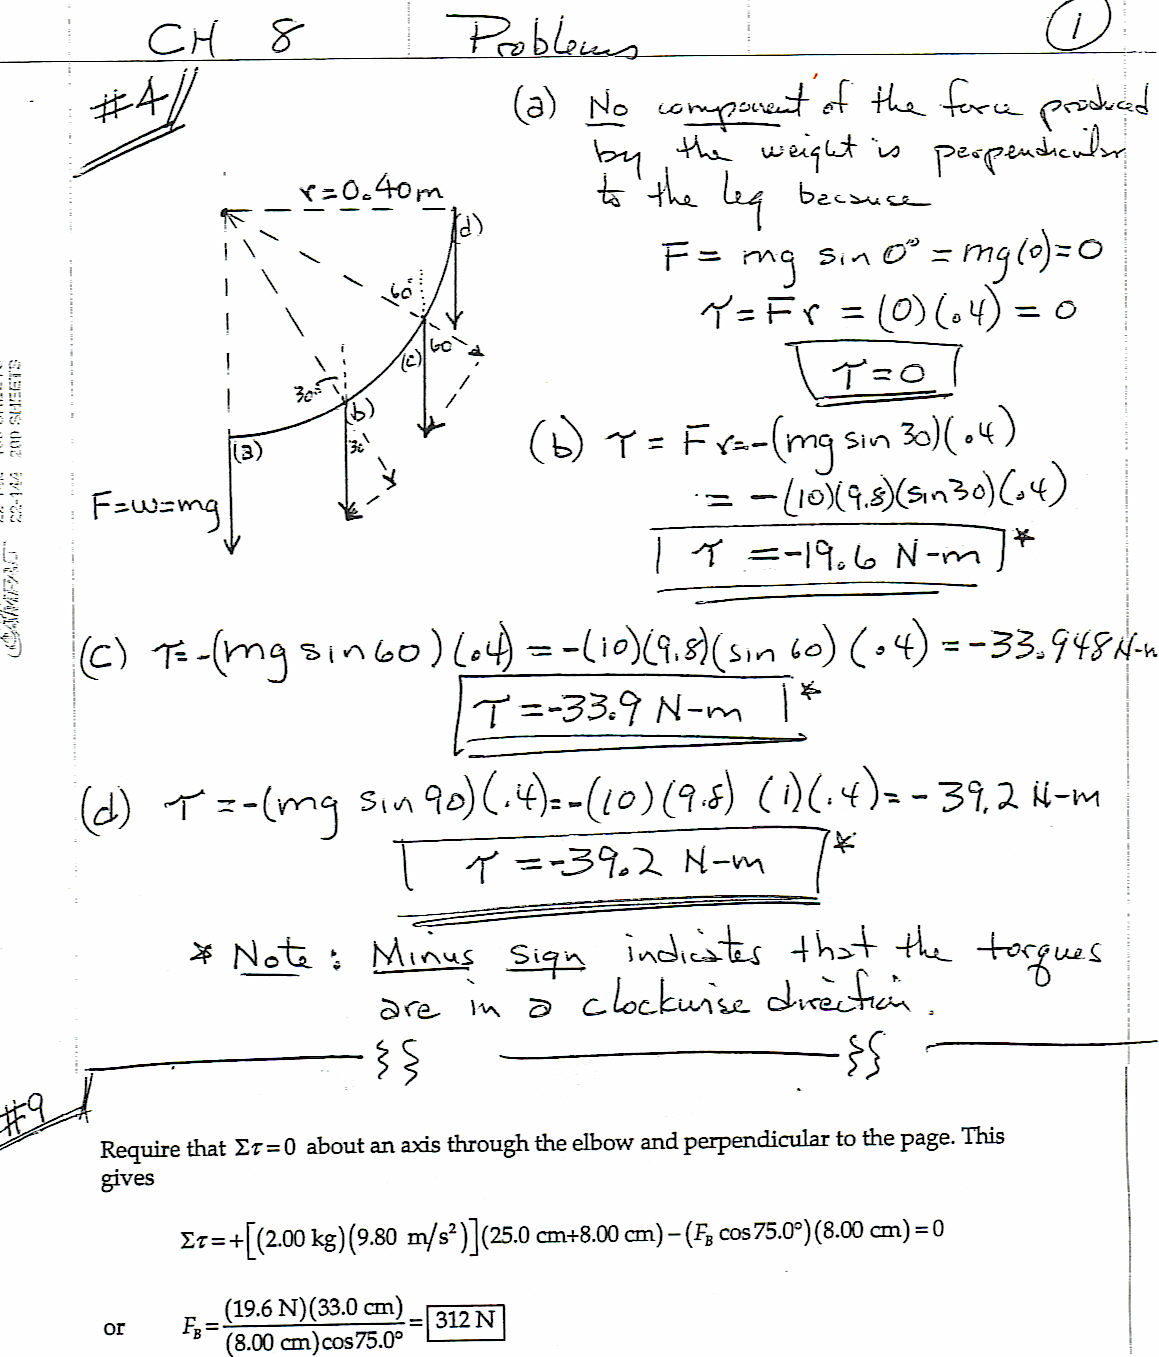 CH 8 Problems 1
#4
(a) No component of the force produced
by the weight is perpendicular
to the leg because
F = mg sin 0° = mg(0)=0
τ = Fr = (0)(.4) = 0
τ=0
r=0.40m
(d)
60°
(c) 60
30°
(b)
(a)
F=w=mg
(b) τ = Fr=-(mg sin 30)(.4)
= -(10)(9.8)(sin30)(.4)
τ = -19.6 N-m *
(c) τ=-(mg sin 60)(.4) = -(10)(9.8)(sin 60)(.4) = -33.948 N-m
τ = -33.9 N-m *
(d) τ = -(mg sin 90)(.4)= -(10)(9.8) (1)(.4)= -39.2 N-m
τ = -39.2 N-m *
* Note: Minus sign indicates that the torques
are in a clockwise direction.
#9
Require that Στ=0 about an axis through the elbow and perpendicular to the page. This
gives
Στ=+[(2.00 kg)(9.80 m/s²)](25.0 cm+8.00 cm)-(F_B cos75.0°)(8.00 cm)=0
or F_B = (19.6 N)(33.0 cm) / (8.00 cm)cos75.0° = 312 N
22-144 200 SHEETS